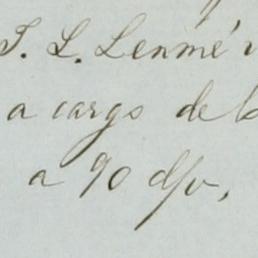 T. L. Lenmé
a cargo de
a 90 d/v,